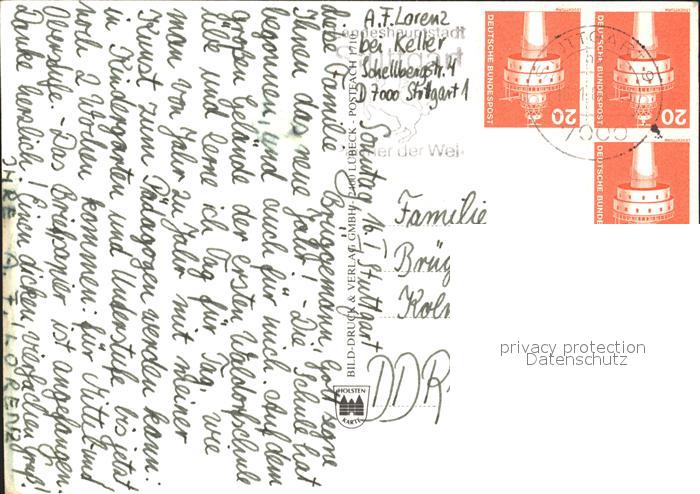 Sonntag 16.1. Stuttgart
Liebe Familie Brüggemann, Gott segne
Ihnen das neue Jahr! – Die Schule hat
begonnen, und auch für mich. Auf dem
großen Gelände der ersten Waldorfschule
lebe und lerne ich Tag für Tag, wie
man von Jahr zu Jahr mit seiner
Kunst zum Pädagogen werden kann:
in Kindergarten und Unterstufe bis jetzt
noch 2 Wochen kommen: für Mittel und
Oberstufe. – Das Briefpapier ist angefangen.
Danke herzlich! Einen dicken, vielfachen Gruß!
IHRE A. F. LORENZ
A.F. Lorenz
bei Keller
Schellbergstr. 4
D 7000 Stuttgart 1
Landeshauptstadt
Stuttgart
der Wei
Familie
Brüg
Koln
DDR
BILD-DRUCK & VERLAG GMBH · 2400 LÜBECK · POSTFACH
HOLSTEN
KARTE
LEUCHTTURM
DEUTSCHE BUNDESPOST
20
LEUCHTTURM
DEUTSCHE BUNDESPOST
20
DEUTSCHE BUNDE
STUTTGART
7000
privacy protection
Datenschutz